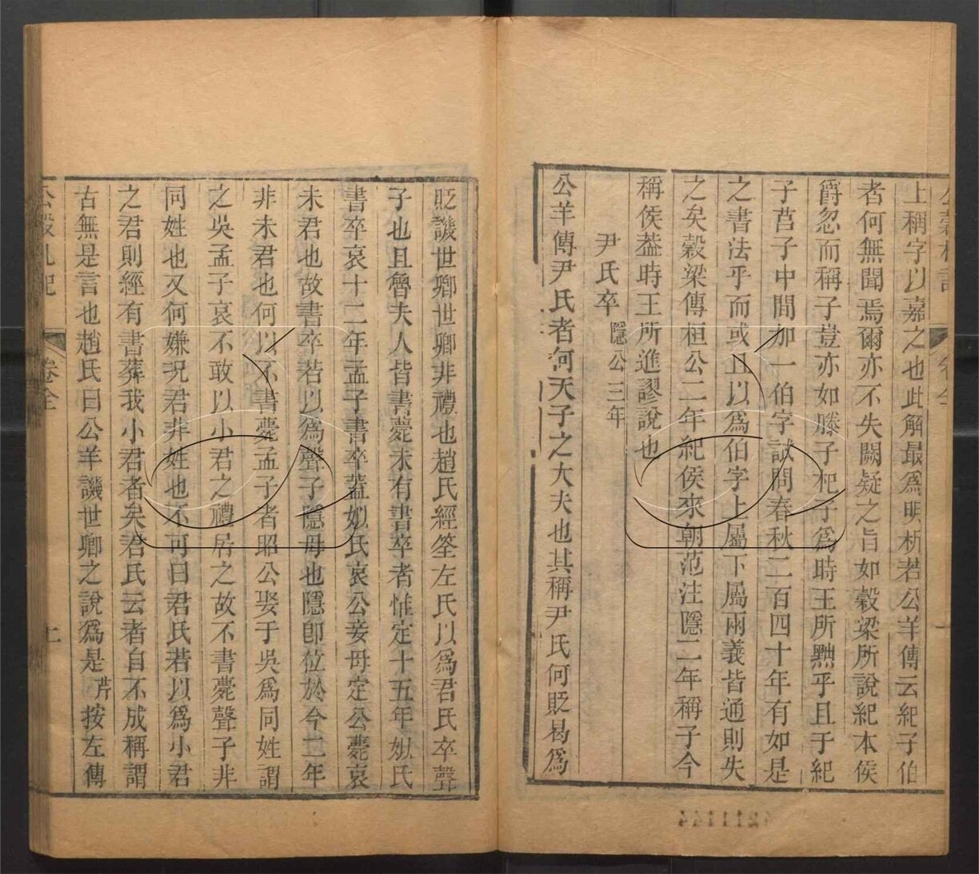 上稱字以嘉之也此解最爲明析若公羊傳云紀子伯
者何無聞焉爾亦不失闕疑之旨如穀梁所說紀本侯
爵忽而稱子豈亦如滕子杞子爲時王所黜乎且于紀
子莒子中間加一伯字試問春秋二百四十年有如是
之書法乎而或且以爲伯字上屬下屬兩義皆通則失
之矣穀梁傳桓公二年紀侯來朝范注隱二年稱子今
稱侯葢時王所進謬說也
尹氏卒 隱公三年
公羊傳尹氏者何天子之大夫也其稱尹氏何貶曷爲
貶譏世卿世卿非禮也趙氏經筌左氏以爲君氏卒聲
子也且魯夫人皆書薨未有書卒者惟定十五年姒氏
書卒哀十二年孟子書卒蓋姒氏哀公妾母定公薨哀
未君也故書卒若以爲聲子隱母也隱卽位於今三年
非未君也何以不書薨孟子者昭公娶于吳爲同姓謂
之吳孟子哀不敢以小君之禮居之故不書薨聲子非
同姓也又何嫌況君非姓也不可曰君氏若以爲小君
之君則經有書葬我小君者矣君氏云者自不成稱謂
古無是言也趙氏曰公羊譏世卿之說爲是芹按左傳
卷全